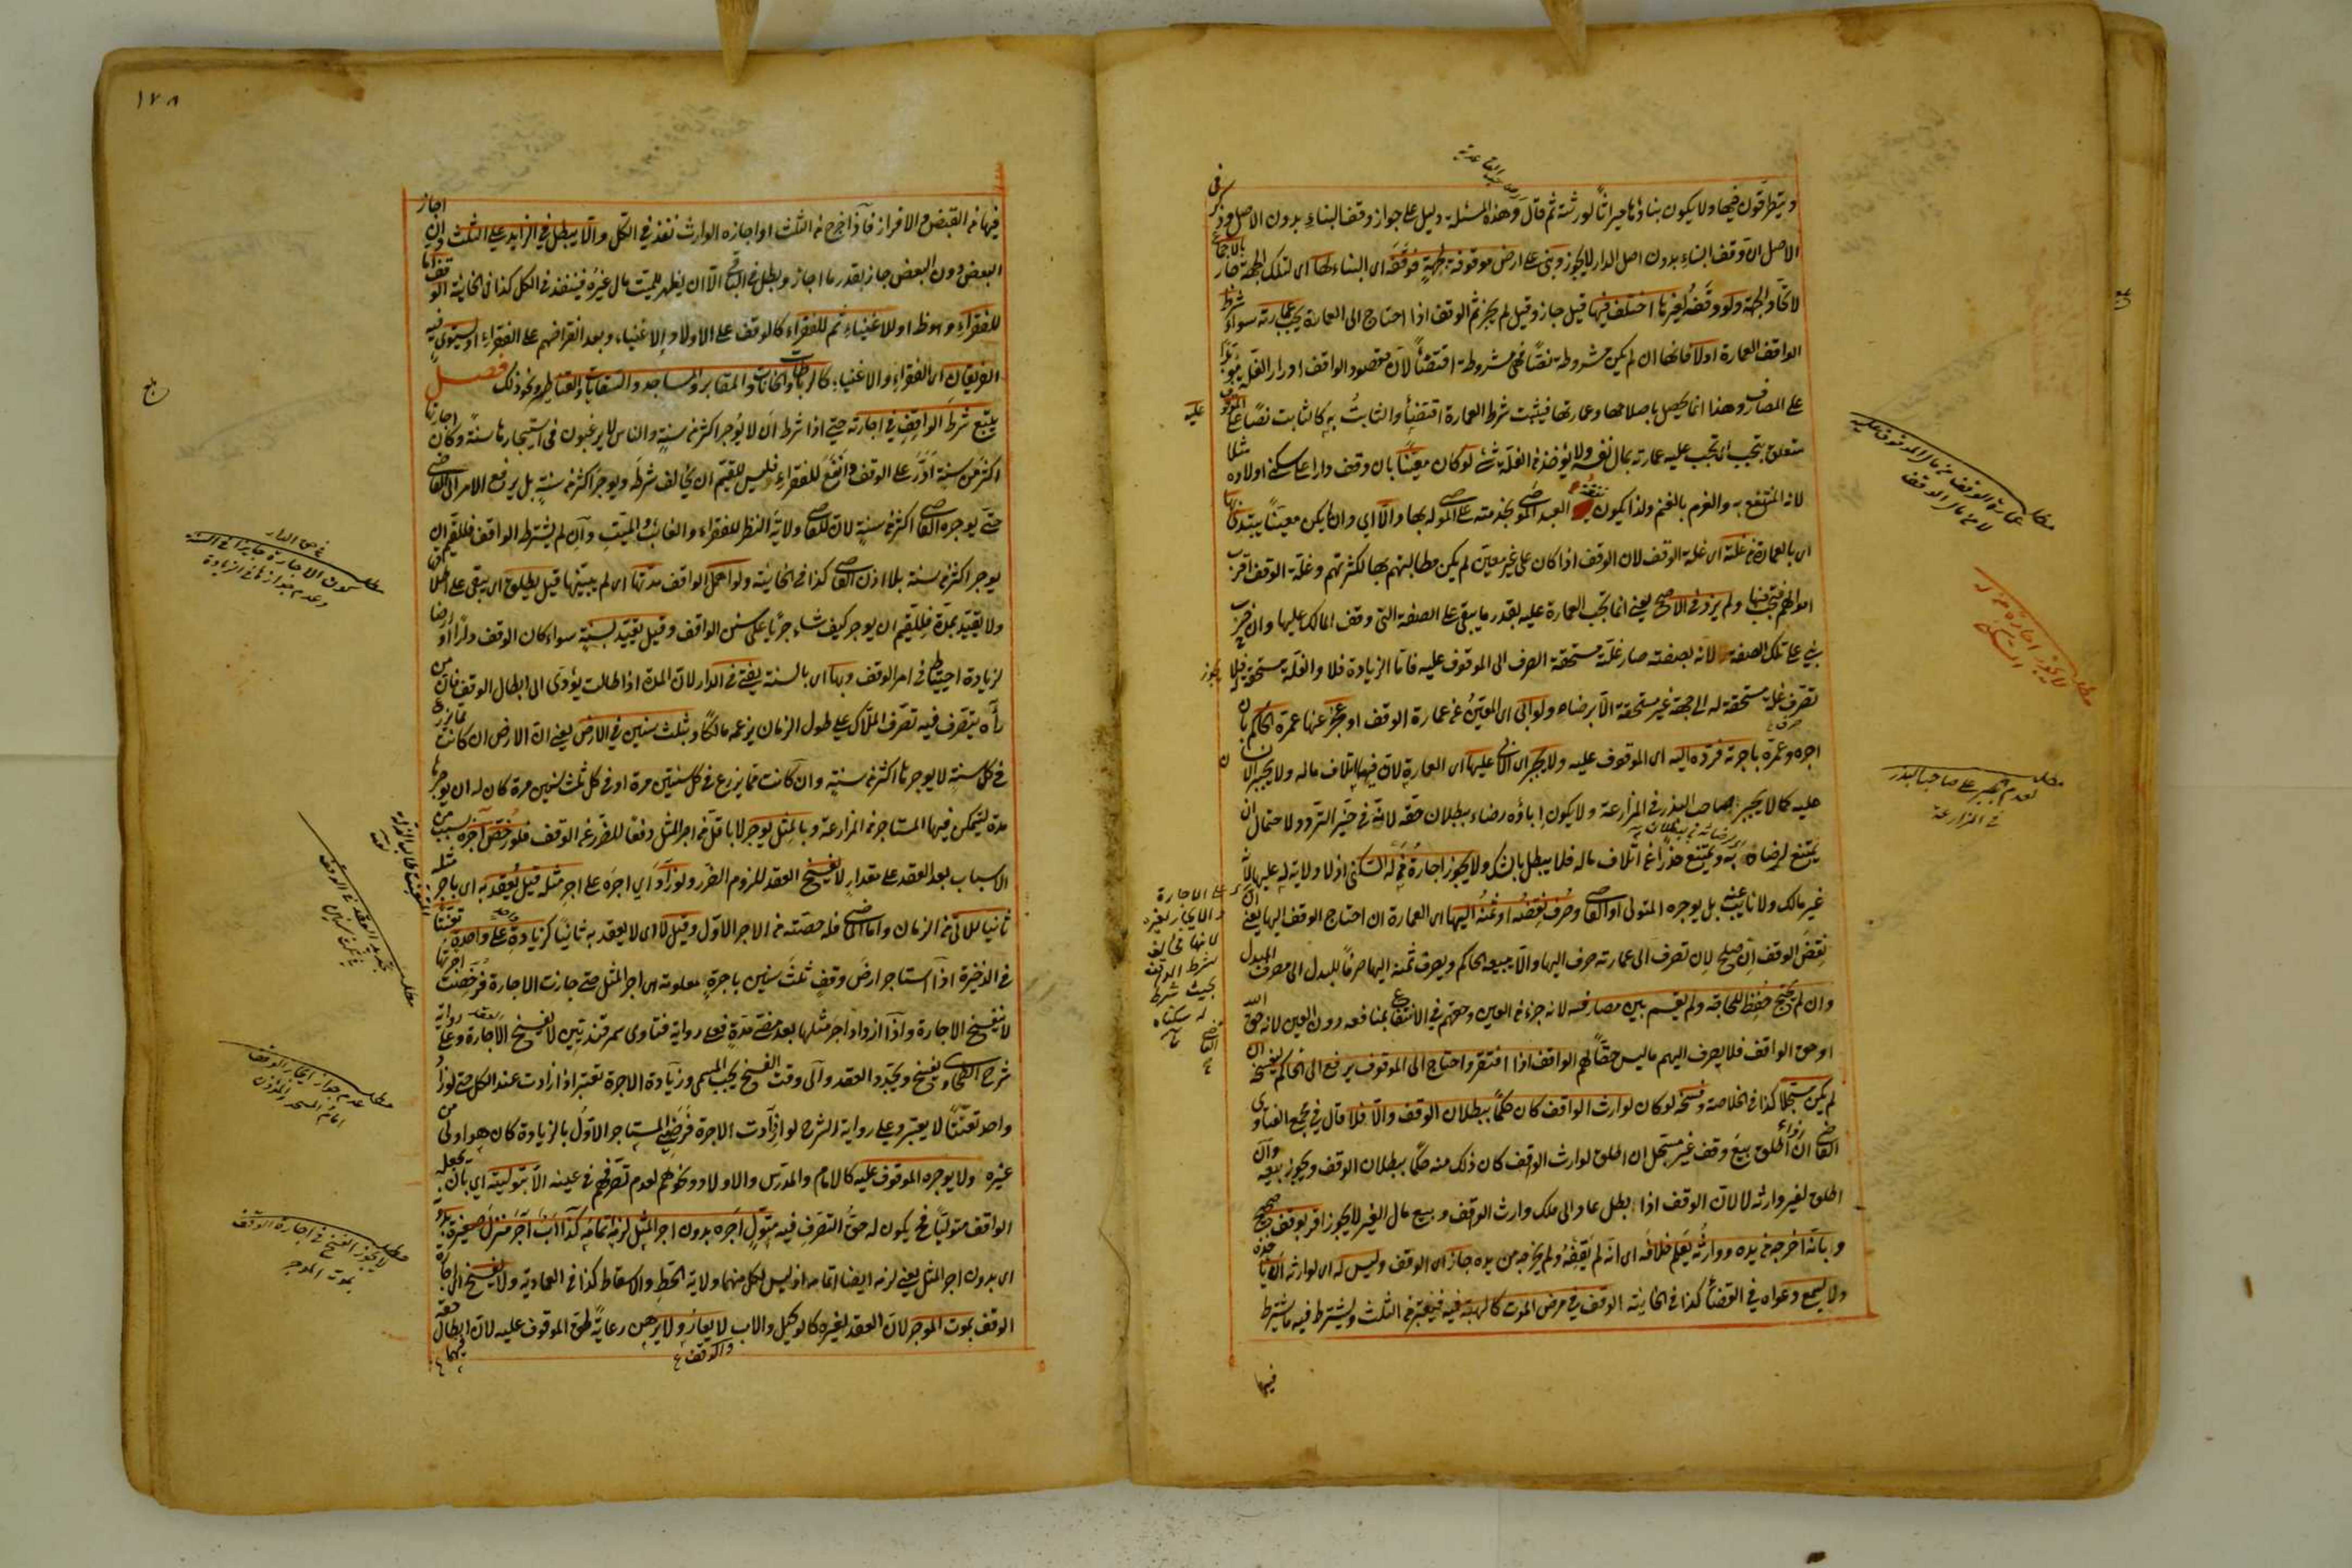 ويتطرقون فيها ولا يكون بناؤها ميراثا لورثته ثم قال وهذه المسئلة دليل على جواز وقف البناء بدون الاصل وذكر في
الاصل ان وقف البناء بدون اصل الدار لا يجوز وبنى على ارض موقوفة لجهة فوقفه اى البناء لها اى لتلك الجهة جاز بالاجماع
لاتحاد الجهة ولو وقفه لغيرها اختلف فيها قيل جاز وقيل لم يجز ثم الوقف اذا احتاج الى العمارة يجب عمارته سواء شرط
الواقف العمارة اولا فانها ان لم يكن مشروطة نصا فهى مشروطة اقتضاء لان مقصود الواقف ادرار الغلة مؤبدا
على المصارف وهذا انما يحصل باصلاحها وعمارتها فيثبت شرط العمارة اقتضاء والثابت به كالثابت نصا على الموقوف عليه
متعلق بتجب اى تجب عليه عمارته بمال نفسه ولا يؤخذ من الغلة شئ لو كان معينا بان وقف دارا على سكنى اولاده مثلا
لانه المنتفع به والغرم بالغنم ولذا يكون نفقة العبد الموصى بخدمته على الموصى له بها والا اي وان لم يكن معينا يبتدئ بها
اى بالعمارة من غلته اى غلة الوقف لان الوقف اذا كان على غير معين لم يكن مطالبتهم بها لكثرتهم وغلة الوقف اقرب
اموالهم فتجب فيها ولم يزد في الاصح يعنى انما تجب العمارة عليه بقدر ما يبقى على الصفة التى وقف المالك عليها وان خرب
بنى على تلك الصفة لانه بصفته صار غلته مستحقة الصرف الى الموقوف عليه فاما الزيادة فلا والغلة مستحقة له فلا يجوز
تصرف غلة مستحقة له الى جهة غير مستحقة الا برضاه ولو ابى اى المعين من عمارة الوقف او عجز عنها عمره الحاكم بان
اجره وعمره باجرته فرده اليه اى الموقوف عليه ولا يجبر اى الابى عليها اى العمارة لان فيها اتلاف ماله ولا يجبر الانسان
عليه كالا يجبر صاحب البذر في المزارعة ولا يكون اباؤه رضاء ببطلان حقه لانه في حيز التردد لاحتمال ان
يمتنع لرضاه به ويمتنع حذرا عن اتلاف ماله فلا يبطل بالشك ولا يجوز اجارة من له السكنى اذ لا ولاية له عليها لانه
غير مالك ولا نايب عنه بل يوجره المتولى او القاضى وصرف نقضه او ثمنه اليها اى العمارة ان احتاج الوقف اليها يعنى ان
نقض الوقف ان صلح لان تصرف الى عمارته صرف اليها والا يبيعه الحاكم ويصرف ثمنه اليها صرفا للبدل الى مصرف المبدل
وان لم يحتج حفظ للحاجة ولم يقسم بين مصارفه لانه جزء من العين وحقهم في الانتفاع بمنافعه دون العين لانه حق الله
او حق الواقف فلا يصرف اليهم ما ليس حقا لهم الواقف اذا افتقر واحتاج الى الموقوف يرفع الى الحاكم ليفسخه ان
لم يكن مسجلا كذا في الخلاصة وفسخه لو كان لوارث الواقف كان حكما ببطلان الوقف والا فلا قال في مجمع الفتاوى
القاضى اذا اطلق بيع وقف غير مسجل ان اطلق لوارث الواقف كان ذلك منه حكما ببطلان الوقف ويجوز بيعه وان
اطلق لغير وارثه لا لان الوقف اذا بطل عاد الى ملك وارث الوقف وبيع مال الغير لا يجوز اقر بوقف صحيح
وبانه اخرجه من يده ووارثه يعلم خلافه اى انه لم يقفه ولم يخرجه من يده جاز اى الوقف وليس له اى لوارثه ان يأخذه
ولا يسمع دعواه في القضاء كذا في الخانية الوقف في مرض الموت كالهبة فيه فيعتبر من الثلث ويشترط فيه ما يشترط
فيها
مطلب عمارة الوقف من مال الموقوف عليه
لا من مال الوقف
مطلب لا يجوز اجارة من له السكنى
مطلب لعدم يجبر على صاحب البذر
في المزارعة
١٧٨
فيها من القبض والافراز فاذا خرج من الثلث او اجازه الوارث نفذ في الكل والا يبطل في الزايد على الثلث وان اجاز
البعض دون البعض جاز بقدر ما اجاز وبطل في الباقى الا ان يظهر للميت مال غيره فينفذ في الكل كذا في الخانية الوقف اما
للفقراء وهو ظ او للاغنياء ثم للفقراء كالوقف على الاولاد الاغنياء وبعد انقراضهم على الفقراء او يستوى فيه
الفريقان اى الفقراء والاغنياء كالرباطات والخانات والمقابر والمساجد والسقايات والقناطر ونحو ذلك فصل
يتبع شرط الواقف في اجارته حتى اذا شرط ان لا يؤجر اكثر من سنة والناس لا يرغبون في استيجارها سنة وكان اجارتها
اكثر من سنة ادر على الوقف وانفع للفقراء فليس للقيم ان يخالف شرطه ويوجر اكثر من سنة بل يرفع الامر الى القاضى
حتى يوجره القاضى اكثر من سنة لان للقاضى ولاية النظر للفقراء والغائب والميت وان لم يشترط الواقف فللقيم ان
يوجر اكثر من سنة بلا اذن القاضى كذا في الخانية ولو اهمل الواقف مدتها اى لم يبينها قيل يطلق اى يبقى على اطلاقه
ولا يقيد بمدة فللقيم ان يوجر كيف شاء جريا على سنن الواقف وقيل يقيد بسنة سواء كان الوقف دارا او ارضا
لزيادة احتياط في امر الوقف وبها اى بالسنة يفتى في الدار لان المدة اذا طالت يؤدى الى ابطال الوقف فان من
رآه يتصرف فيه تصرف الملاك على طول الزمان يزعمه مالكا وبثلث سنين في الارض يعنى ان الارض ان كانت مما يزرع
في كل سنة لا يوجرها اكثر من سنة وان كانت مما يزرع في كل سنتين مرة او في كل ثلث سنين مرة كان له ان يوجرها
مدة يتمكن فيها المستاجر من المزارعة وبالمثل يوجر لا باقل من اجر المثل دفعا للضرر عن الوقف فلو رخص اجره بسبب من
الاسباب بعد العقد على مقدار لا يفسخ العقد للزوم الضرر ولو زاد اى اجره على اجر مثله قيل يعقد به اى باجر مثله
ثانيا للاتى من الزمان واما الماضى فله حصته من الاجر الاول وقيل لا اى لا يعقد به ثانيا كزيادة على واحدة تعنتا
في الذخيرة اذا استاجر ارض وقف ثلث سنين باجرة معلومة هى اجر المثل حتى جازت الاجارة فرخصت اجرتها
لا ينفسخ الاجارة واذا ازداد اجر مثلها بعد مضى مدة فعلى رواية فتاوى سمرقند يتبين لا يفسخ الاجارة وعلى رواية
شرح الطحاوى يفسخ ويجدد العقد والى وقت الفسخ يجب المسمى وزيادة الاجرة تعتبر اذا زادت عند الكل حتى لو زاد
واحد تعنتا لا يعتبر وعلى رواية الشرح لو ازدادت الاجرة فرضى المستاجر الاول بالزيادة كان هو اولى من
غيره ولا يوجره الموقوف عليه كالامام والمدرس والاولاد ونحوهم لعدم تصرفهم في عينه الا بتوليته اي بان يجعله
الواقف متوليا فح يكون له حق التصرف فيه متول اجره بدون اجر المثل لزمه اتمامه كذا اب اجر منزل صغيره بدونه
اى بدون اجر المثل يعنى لزمه ايضا اتمامه اذ ليس لكل منهما ولاية الحط والاسقاط كذا في العمادية ولا يفسخ اى اجارة
الوقف بموت الموجر لان العقد لغيره كالوكيل والاب لا يعار ولا يرهن رعاية لحق الموقوف عليه لان ابطال حقه
مطلب كون الاجارة جايزا في السنة
وعدم جوازها في الزيادة
مطلب عدم جواز ايجار الوقف
امام المسجد والمؤذن
مطلب لا يجوز الفسخ في اجارة الوقف
بموت الموجر